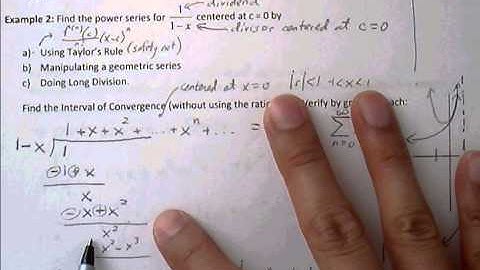 dividend
Example 2: Find the power series for 1/(1 − x) centered at c = 0 by
divisor centered at c = 0
f⁽ⁿ⁾(c) (x-c)ⁿ
a) Using Taylor's Rule (safety net)
b) Manipulating a geometric series
c) Doing Long Division.
centered at x=0 |r|<1 -1<x<1
Find the Interval of Convergence (without using the ratio verify by gr each:
1 + x + x² + ... + xⁿ + ... =
∞
Σ
n=0
1-x 1
1 + x
x
x + x²
x²
x² - x³